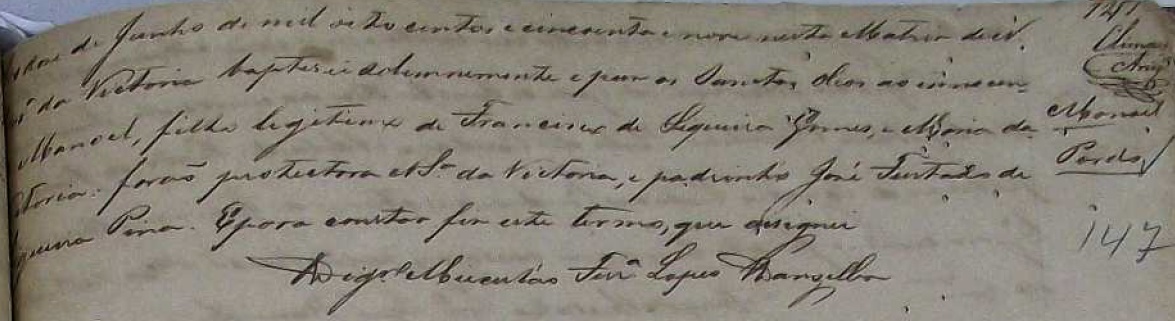 doze de Junho de mil oito centos e cincoenta e nove nesta Matriz de N.
da Victoria baptisei solemnemente e puz os Sanctos oleos ao innocen-
Manoel, filho legitimo de Francisco de Siqueira Gomes, e Maria da
ctoria: forão protectora N Sª da Victoria, e padrinho José Furtado de
queira Pina. E para constar fiz este termo, que assignei
Lopes
Manoel
Pardo
147